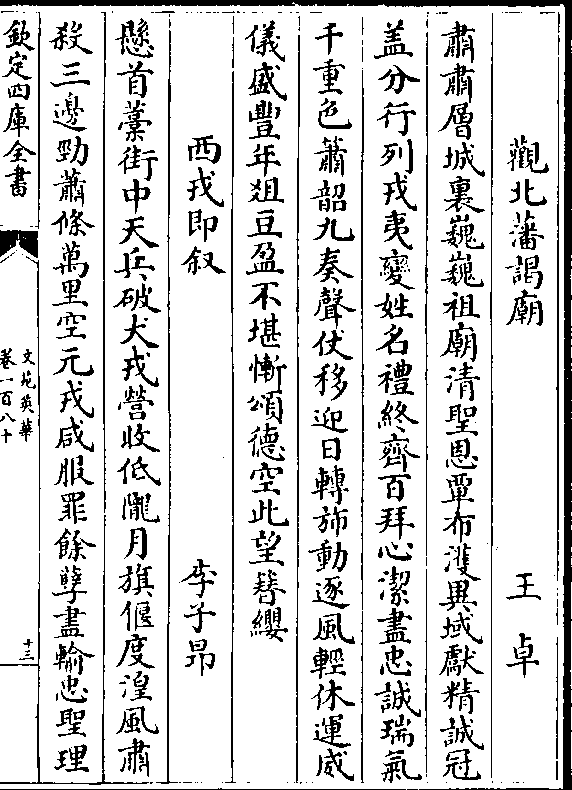 觀北藩謁廟 王卓
肅肅層城裏巍巍祖廟清聖恩覃布濩異域獻精誠冠
盖分行列戎夷變姓名禮終齊百拜心潔盡忠誠瑞氣
千重色簫韶九奏聲仗移迎日轉斾動逐風輕休運威
儀盛豐年俎豆盈不堪慚頌德空此望簪纓
西戎即叙 李子昂
懸首藁街中天兵破犬戎營收低隴月旗偃度湟風肅
殺三邊勁蕭條萬里空元戎咸服罪餘孽盡輸忠聖理
欽定四庫全書
文苑英華
卷一百八十
十三